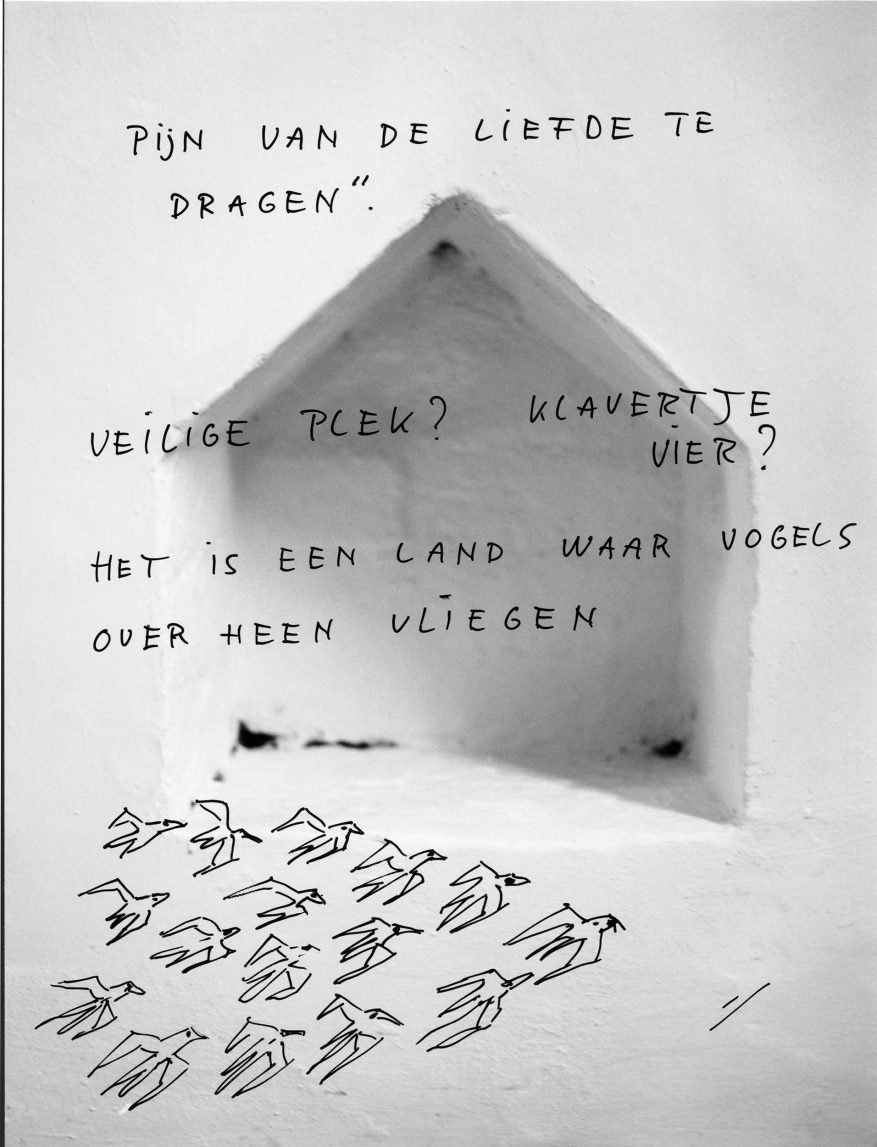 PIJN VAN DE LIEFDE TE
DRAGEN".
VEILIGE PLEK? KLAVERTJE
VIER?
HET IS EEN LAND WAAR VOGELS
OVER HEEN VLIEGEN